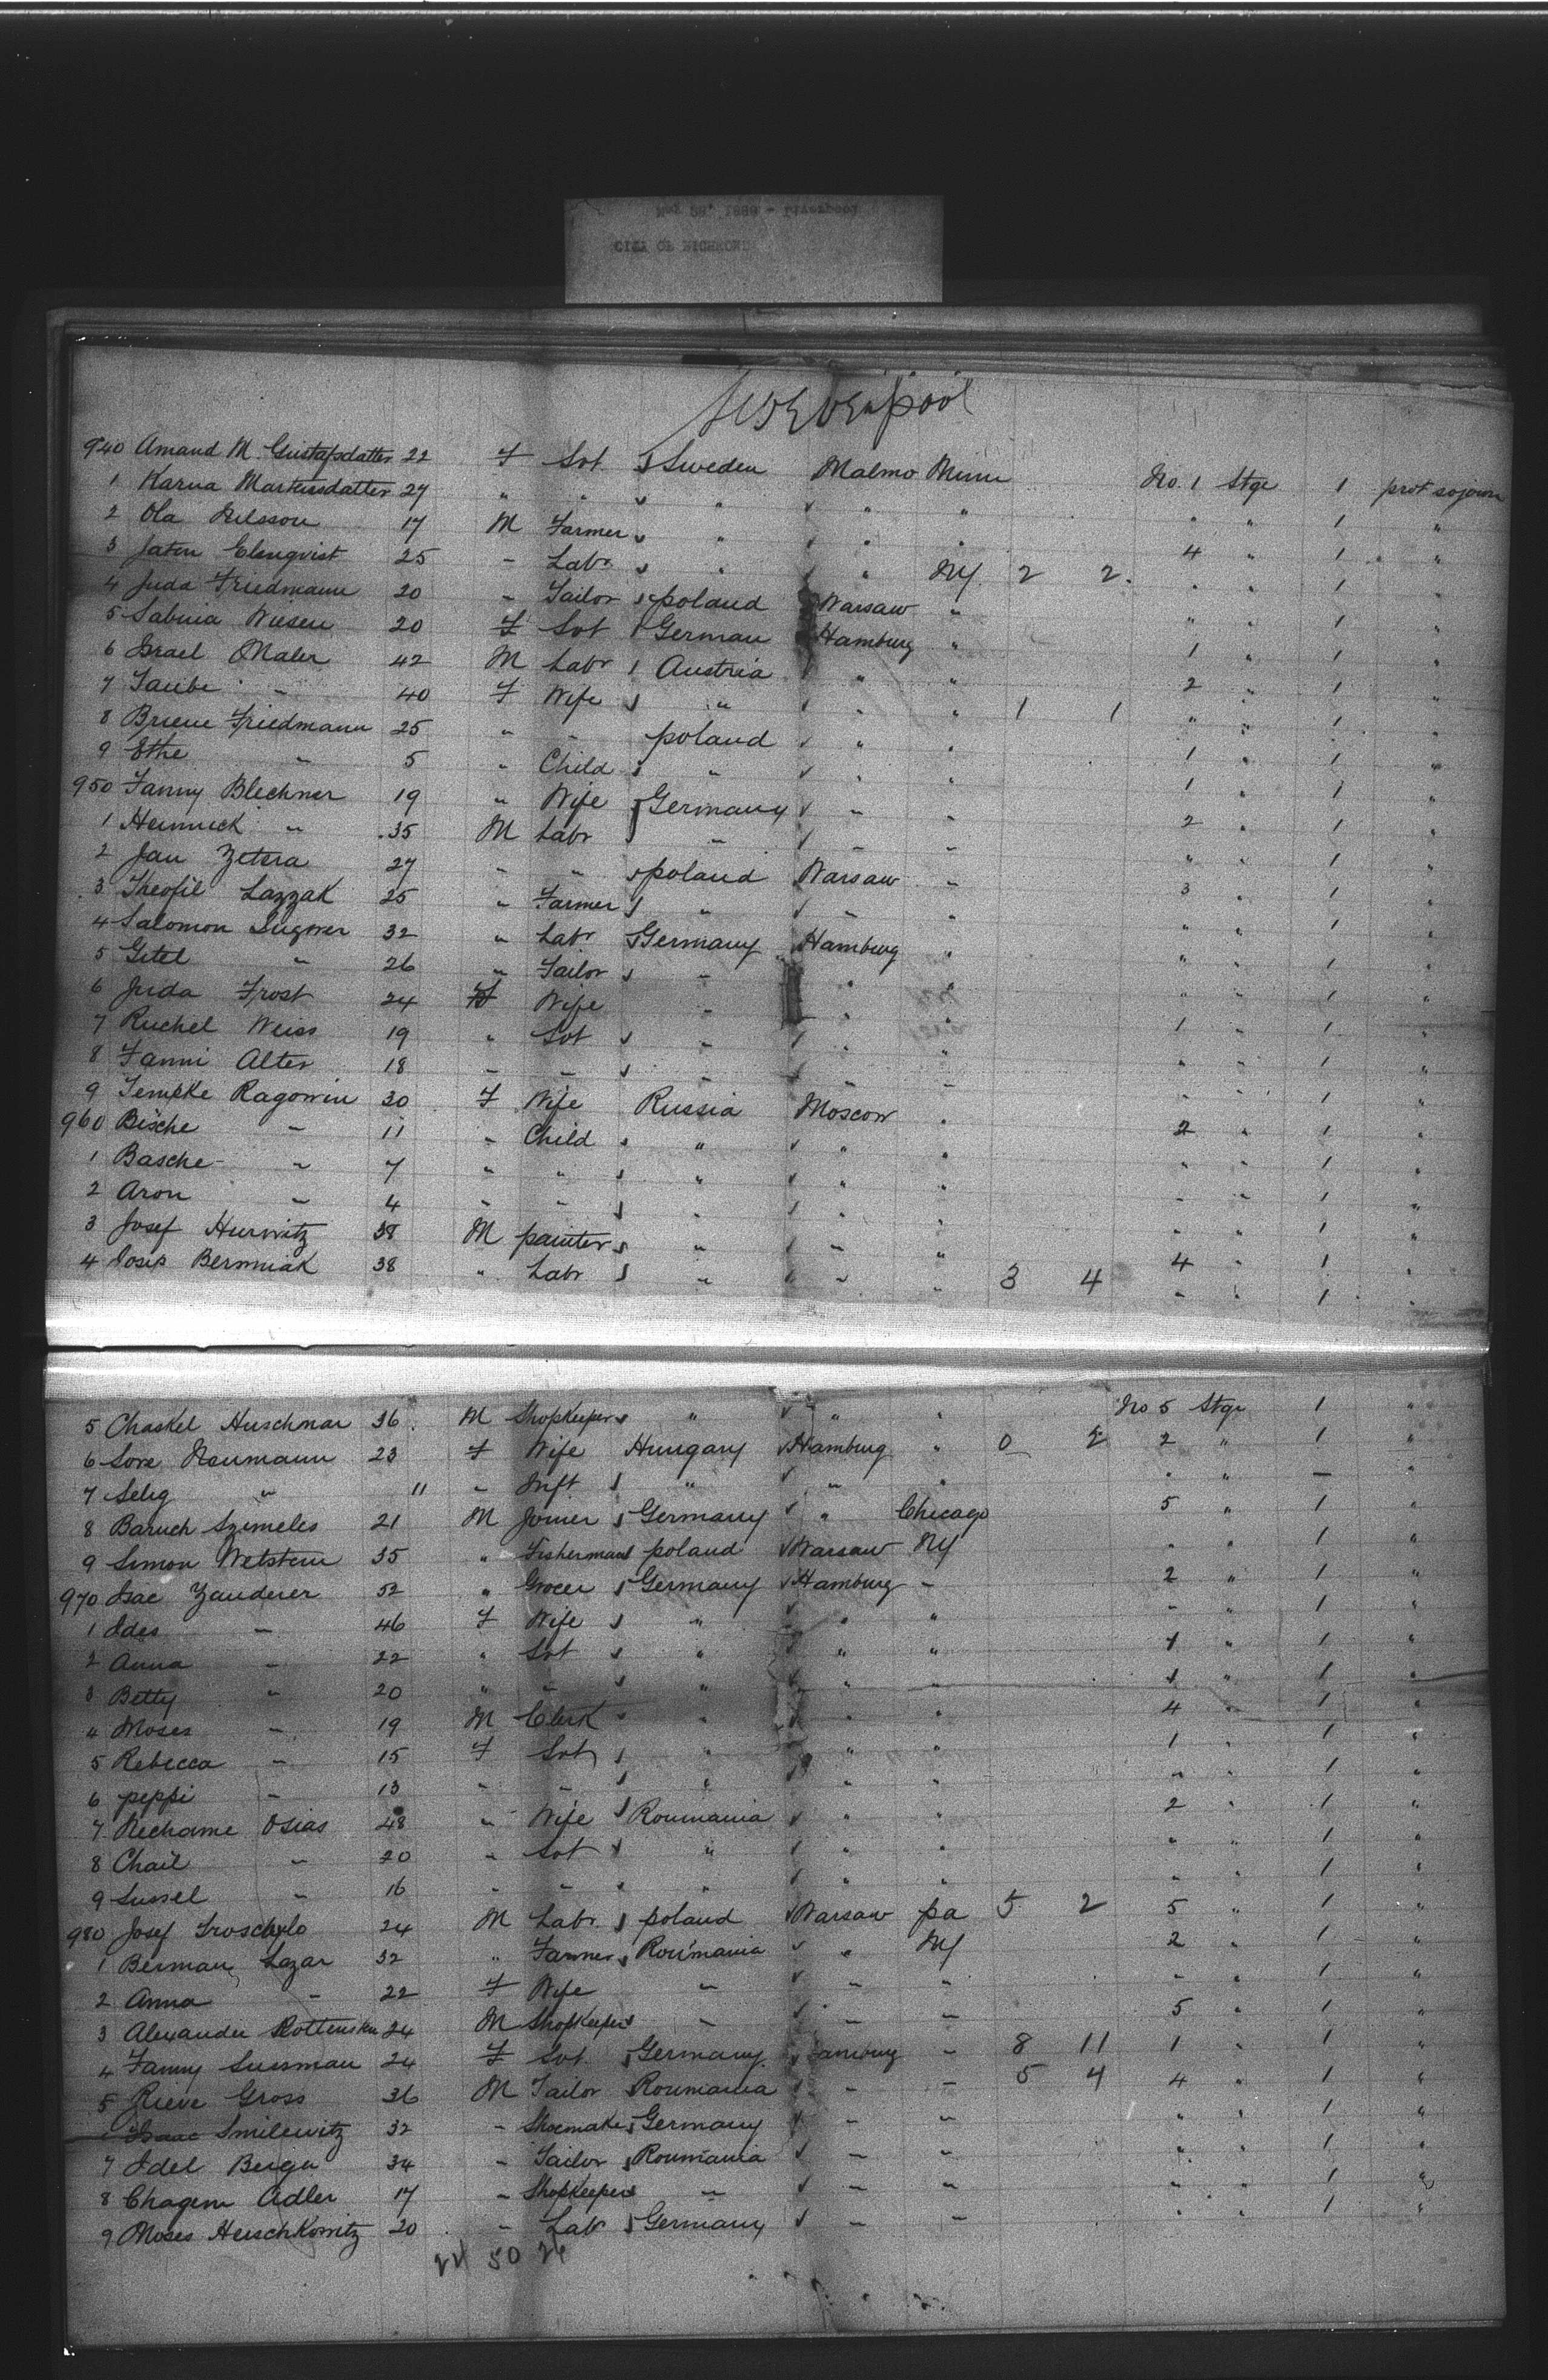 CITY OF RICHMOND
Liverpool
940 Amand M. Gustafsdatter 22 F Svt Sweden Malmo Minn No. 1 Stge 1 prot sojourn
1 Karna Martensdatter 27 " " " " " " " 1 "
2 Ola Nilsson 17 M Farmer " " " 4 " 1 "
3 Elmqvist 25 " Labr " " NY 2 2 " " 1 "
4 Juda Friedmann 20 " Tailor poland Warsaw " " " 1 "
5 Sabina Wiesen 20 F Svt German Hamburg " 1 " 1 "
6 Israel Maler 42 M Labr Austria " " 2 " 1 "
7 Taube " 40 F Wife " " " 1 1 " " 1 "
8 Friedmann 25 " " poland " " 1 " 1 "
9 Ethe " 5 " Child " " " 1 " 1 "
950 Fanny Blechner 19 " Wife Germany " " 2 " 1 "
1 " 35 M Labr " " " " " 1 "
2 Jan 27 " " poland Warsaw " 3 " 1 "
3 Theofil Lazzak 25 " Farmer " " " " " 1 "
4 Salomon 32 " Labr Germany Hamburg " " " 1 "
5 Gitel " 26 " Tailor " " " " " 1 "
6 Juda Frost 24 F Wife " " 1 " 1 "
7 Ruchel Weiss 19 " Svt " " " " " 1 "
8 Fanni Alter 18 " " " " " " " 1 "
9 Ragowin 30 F Wife Russia Moscow " 2 " 1 "
960 Bische " 11 " Child " " " " " 1 "
1 Basche " 7 " " " " " " " 1 "
2 Aron " 4 " " " " " " " 1 "
3 Josef Hurwitz 38 M painter " " " 4 " 1 "
4 Josip Bermniak 38 " Labr " " " 3 4 " " 1 "
5 Chaskel Huschmar 36 M Shopkeeper " " " No 5 Stge 1 "
6 Sore Neumann 23 F Wife Hungary Hamburg " 0 2 2 " 1 "
7 Selig " 11 " Inft " " " " " – "
8 Baruch Szimeles 21 M Joiner Germany " Chicago 5 " 1 "
9 Simon Wetstein 35 " Fisherman poland Warsaw NY " " 1 "
970 Isac Zanderer 52 " Grocer Germany Hamburg " 2 " 1 "
1 Ides " 46 F Wife " " " " " 1 "
2 Anna " 22 " Svt " " " 1 " 1 "
3 Betty " 20 " " " " " 1 " 1 "
4 Moses " 19 M Clerk " " " 4 " 1 "
5 Rebecca " 15 F Svt " " " 1 " 1 "
6 peppi " 13 " " " " " " " 1 "
7 Nechame Osias 48 " Wife Roumania " " 2 " 1 "
8 Chail " 20 " Svt " " " " " 1 "
9 Sussel " 16 " " " " " " " 1 "
980 Josef 24 M Labr poland Warsaw pa 5 2 5 " 1 "
1 Berman Lazar 32 " Farmer Roumania " NY 2 " 1 "
2 Anna " 22 F Wife " " " " " 1 "
3 Alexander 24 M Shopkeeper " " " 5 " 1 "
4 Fanny Sussman 24 F Svt Germany Hamburg " 8 11 1 " 1 "
5 Rieve Gross 36 M Tailor Roumania " " 5 4 4 " 1 "
6 Isaac Smilewitz 32 " Shoemaker Germany " " " " 1 "
7 Idel Berger 34 " Tailor Roumania " " " " 1 "
8 Chagem Adler 17 " Shopkeeper " " " " " 1 "
9 Moses Herschkowitz 20 " Labr Germany " " " " 1 "
24 50 26